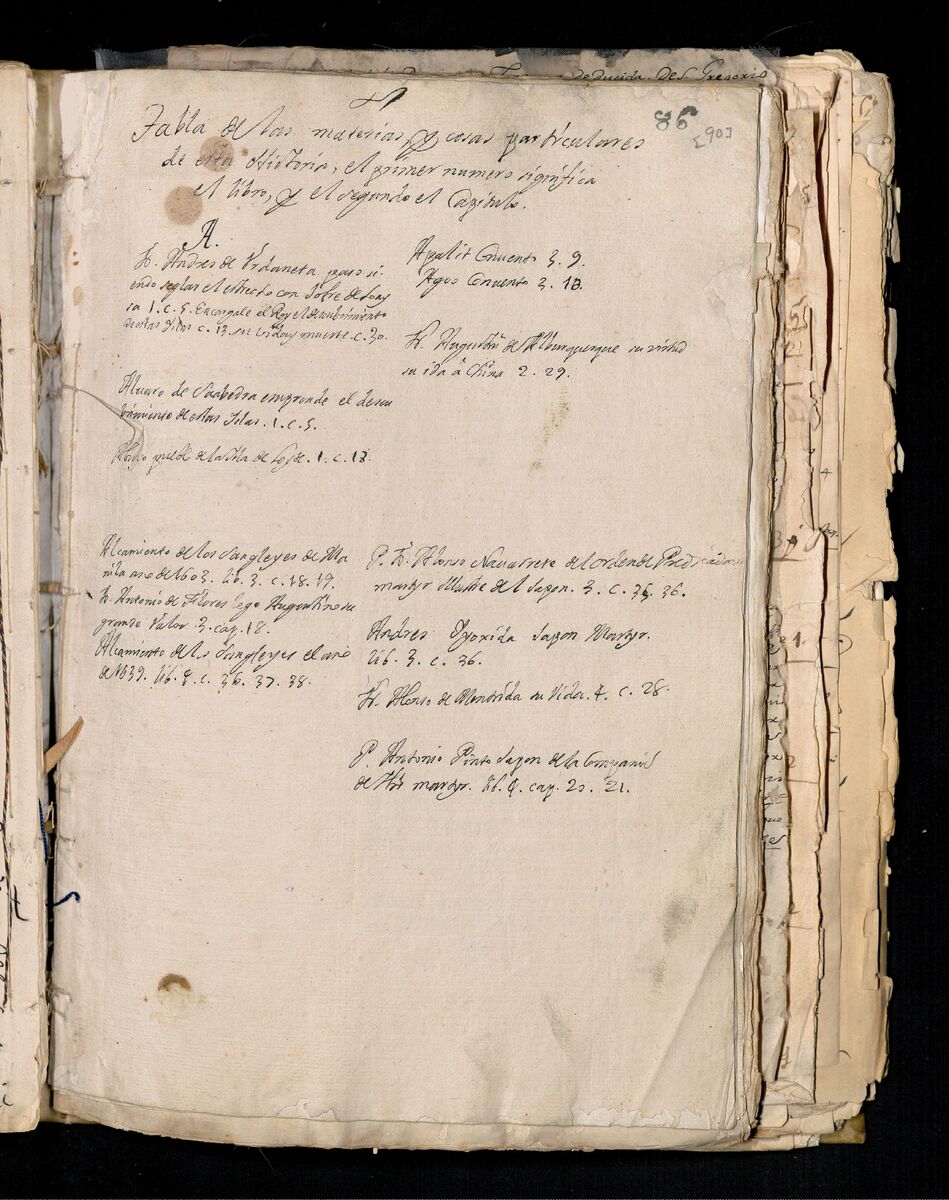 86
[90]
Tabla de las materias, y cosas particulares
de esta Historia, el primer numero significa
el libro, y el segundo el Capitulo.
A.
F. Andres de Vrdaneta paso si
endo seglar el estrecho con Jofre de Loay
sa 1. c. 5. Encargale el Rey el descubrimiento
de estas Islas c. 13. su vida y muerte. c. 30.
Alvaro de Saabedra emprende el descu
brimiento de estas Islas. 1. c. 5.
pueblo de la Isla de 1. c. 18.
Alçamiento de los Sangleyes de Ma
nila año de 1603. lib. 3. c. 18. 19.
F. Antonio de Flores lego Augustino su
grande valor 3. cap. 18.
Alçamiento de los Sangleyes el año
de 1639. lib. 4. c. 36. 37. 38.
Apalit Convento 3. 9.
Agoo Convento 3. 18.
F. Augustin de Alburquerque su virtud
su ida â China 2. 29.
P. F. Alonso Navarrete del orden de Predicadores
martyr illustre del Japon. 3. c. 35. 36.
Andres Japon Martyr.
lib. 3. c. 36.
F. Alonso de Mentrida su vida. 4. c. 28.
P. Antonio Pinto Japon de la Compania
martyr. lib. 4. cap. 20. 21.